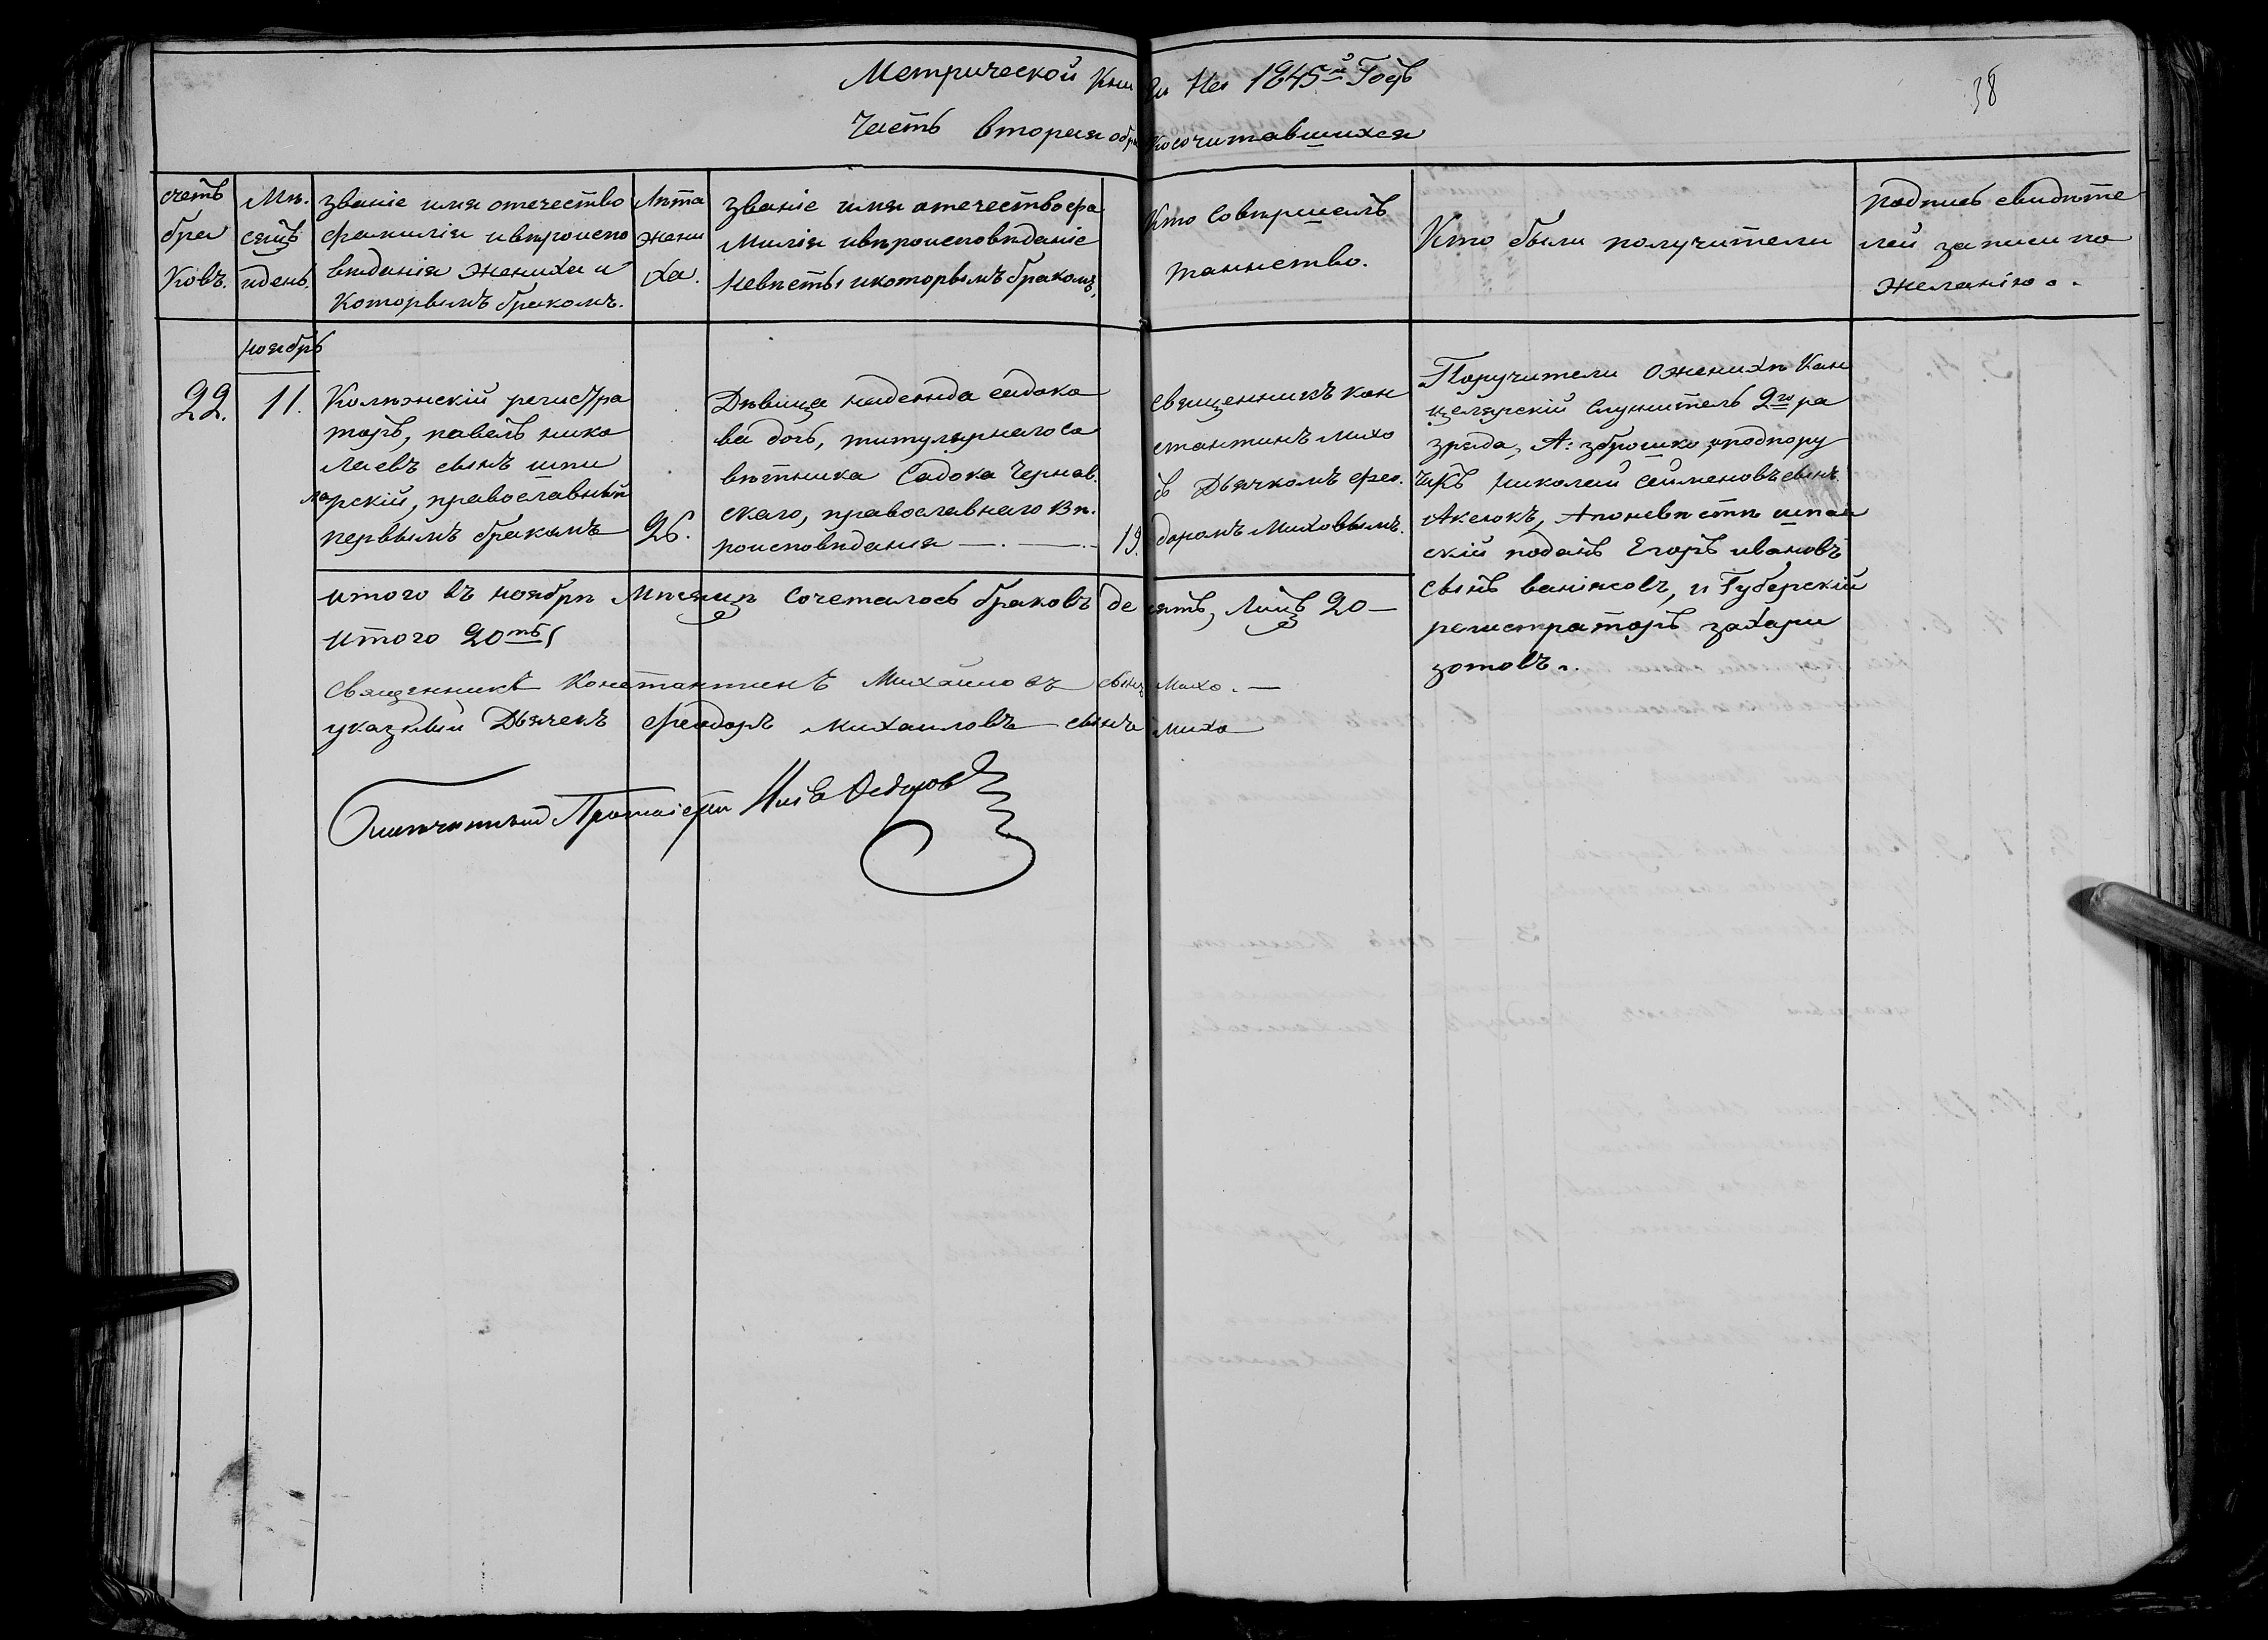 Метрической Книги На 1845й Годъ
38
Часть вторая обракосочитавшихся
счетъ браковъ.
Мѣсяцъ идень.
званіе имя отечество
фамилія ивѣроиспо
вѣданія жениха и
которымъ бракомъ.
Лѣта
жени
ха.
званіе имя отечество фа
милія ивѣроисповѣданіе
невѣсты икоторымъ бракомъ,
Кто Совершалъ
таинство.
Кто были получители
подпись свидѣте
лей записи по
желанію.
ноябрь
22.
11.
Колѣжскій регист
раторъ, павелъ нико
лаевъ сынъ
православный
первымъ бракомъ
26.
Дѣвица надежда садока
ва дочь, титулярнаго со
вѣтника Садока Чернав.
скаго, православнаго Вѣ.
роисповѣданія
19.
священникъ кон
стантинъ михо
съ Дьячкомъ фео.
доромъ Миховымъ.
Поручители Оженихѣ Кан
целярскій Служитель 2го ра
зряда, А: зброшко, иподпору
чикъ николай Сѣменовъ сынъ
Аксюкъ, Апоневѣстѣ
Егоръ ивановъ
сынъ и Губерскій
регистраторъ захари
зотовъ.
итого въ ноябрѣ Мѣсяцѣ сочеталось браковъ десять, Лицъ 20
итого 20ть
священникъ Константинъ Михайловъ сынъ Михо.
указный Дьячекъ феодоръ михаиловъ сынъ михо
Протоіерей Федоровъ